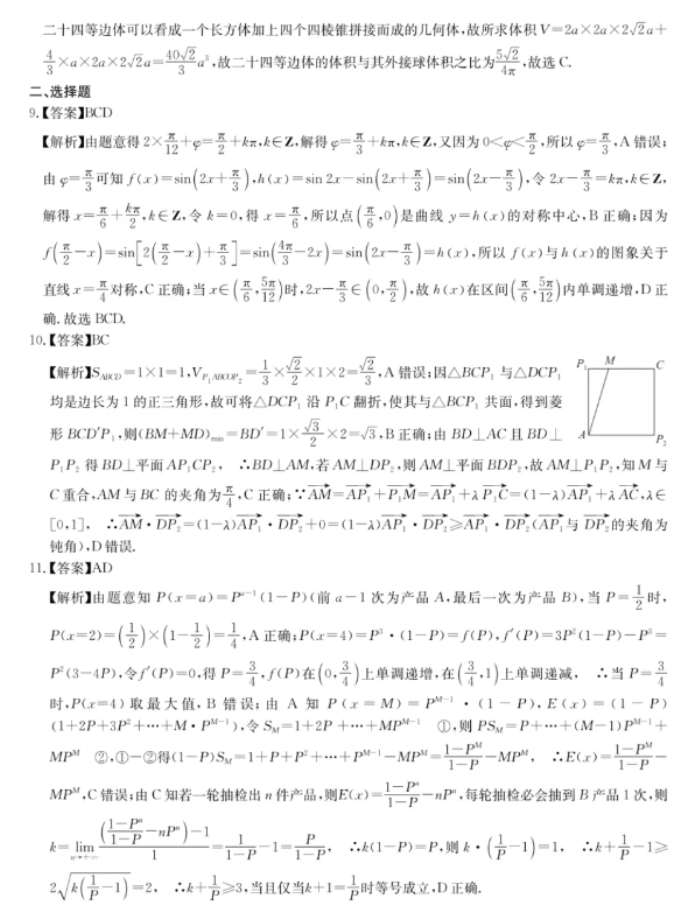 二十四等边体可以看成一个长方体加上四个四棱锥拼接而成的几何体,故所求体积 V=2a×2a×2√2a+
4/3×a×2a×2√2a=40√2/3 a³,故二十四等边体的体积与其外接球体积之比为5√2/4π,故选 C.
二、选择题
9.【答案】BCD
【解析】由题意得 2×π/12+φ=π/2+kπ,k∈Z,解得 φ=π/3+kπ,k∈Z,又因为 0<φ<π/2,所以 φ=π/3,A 错误;
由 φ=π/3可知 f(x)=sin(2x+π/3),h(x)=sin 2x-sin(2x+π/3)=sin(2x-π/3),令 2x-π/3=kπ,k∈Z,
解得 x=π/6+kπ/2,k∈Z,令 k=0,得 x=π/6,所以点(π/6,0)是曲线 y=h(x)的对称中心,B 正确;因为
f(π/2-x)=sin[2(π/2-x)+π/3]=sin(4π/3-2x)=sin(2x-π/3)=h(x),所以 f(x)与 h(x)的图象关于
直线 x=π/4对称,C 正确;当 x∈(π/6,5π/12)时,2x-π/3∈(0,π/2),故 h(x)在区间(π/6,5π/12)内单调递增,D 正
确.故选 BCD.
10.【答案】BC
【解析】S_ABCD=1×1=1,V_P₁ABCDP₂=1/3×√2/2×1×2=√2/3,A 错误;因△BCP₁ 与△DCP₁
均是边长为 1 的正三角形,故可将△DCP₁ 沿 P₁C 翻折,使其与△BCP₁ 共面,得到菱
形 BCD′P₁,则(BM+MD)min=BD′=1×√3/2×2=√3,B 正确;由 BD⊥AC 且 BD⊥
P₁P₂ 得 BD⊥平面 AP₁CP₂, ∴BD⊥AM,若 AM⊥DP₂,则 AM⊥平面 BDP₂,故 AM⊥P₁P₂,知 M 与
C 重合,AM 与 BC 的夹角为π/4,C 正确;∵AM→=AP₁→+P₁M→=AP₁→+λP₁C→=(1-λ)AP₁→+λAC→,λ∈
[0,1], ∴AM→·DP₂→=(1-λ)AP₁→·DP₂→+0=(1-λ)AP₁→·DP₂→≥AP₁→·DP₂→(AP₁→与 DP₂→的夹角为
钝角),D 错误.
P₁ M C
A P₂
11.【答案】AD
【解析】由题意知 P(x=a)=P^(a-1)(1-P)(前 a-1 次为产品 A,最后一次为产品 B),当 P=1/2时,
P(x=2)=(1/2)×(1-1/2)=1/4,A 正确;P(x=4)=P³·(1-P)=f(P),f′(P)=3P²(1-P)-P³=
P²(3-4P),令f′(P)=0,得 P=3/4,f(P)在(0,3/4)上单调递增,在(3/4,1)上单调递减, ∴当 P=3/4
时,P(x=4)取最大值,B 错误;由 A 知 P(x=M)=P^(M-1)·(1-P),E(x)=(1-P)
(1+2P+3P²+…+M·P^(M-1)),令 S_M=1+2P+…+MP^(M-1) ①,则 PS_M=P+…+(M-1)P^(M-1)+
MP^M ②,①-②得(1-P)S_M=1+P+P²+…+P^(M-1)-MP^M=(1-P^M)/(1-P)-MP^M, ∴E(x)=(1-P^M)/(1-P)-
MP^M,C 错误;由 C 知若一轮抽检出 n 件产品,则E(x)=(1-P^n)/(1-P)-nP^n,每轮抽检必会抽到 B 产品 1 次,则
k=lim(n→+∞) (((1-P^n)/(1-P)-nP^n)-1)/1=1/(1-P)-1=P/(1-P), ∴k(1-P)=P,则 k·(1/P-1)=1, ∴k+1/P-1≥
2√(k(1/P-1))=2, ∴k+1/P≥3,当且仅当k+1=1/P时等号成立,D 正确.